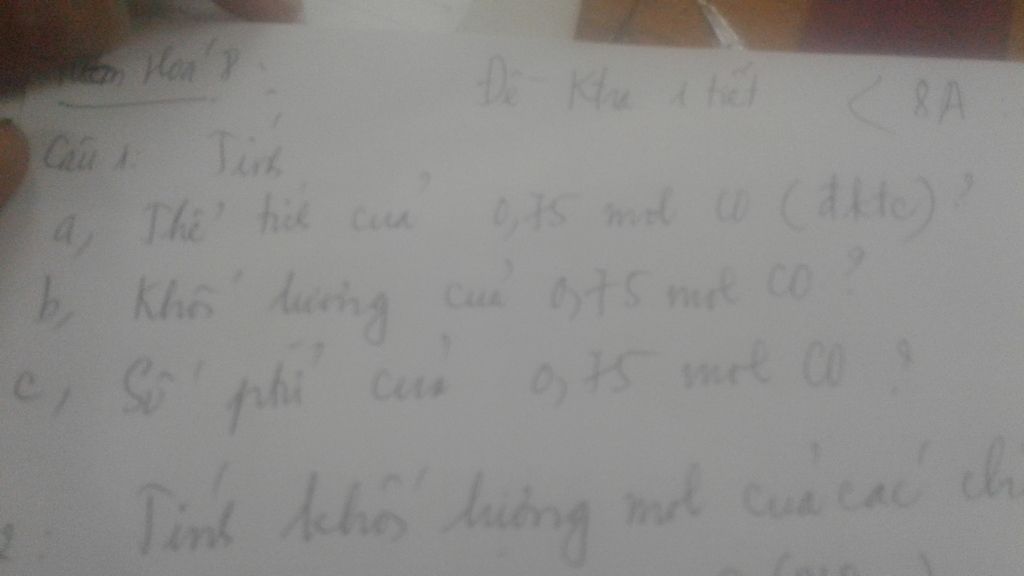 Hoá 8:
Đề Ktra 1 tiết < 8A
Câu 1: Tính
a, Thể tích của 0,75 mol CO (đktc)?
b, Khối lượng của 0,75 mol CO?
c, Số ptử của 0,75 mol CO?
2: Tính khối lượng mol của các